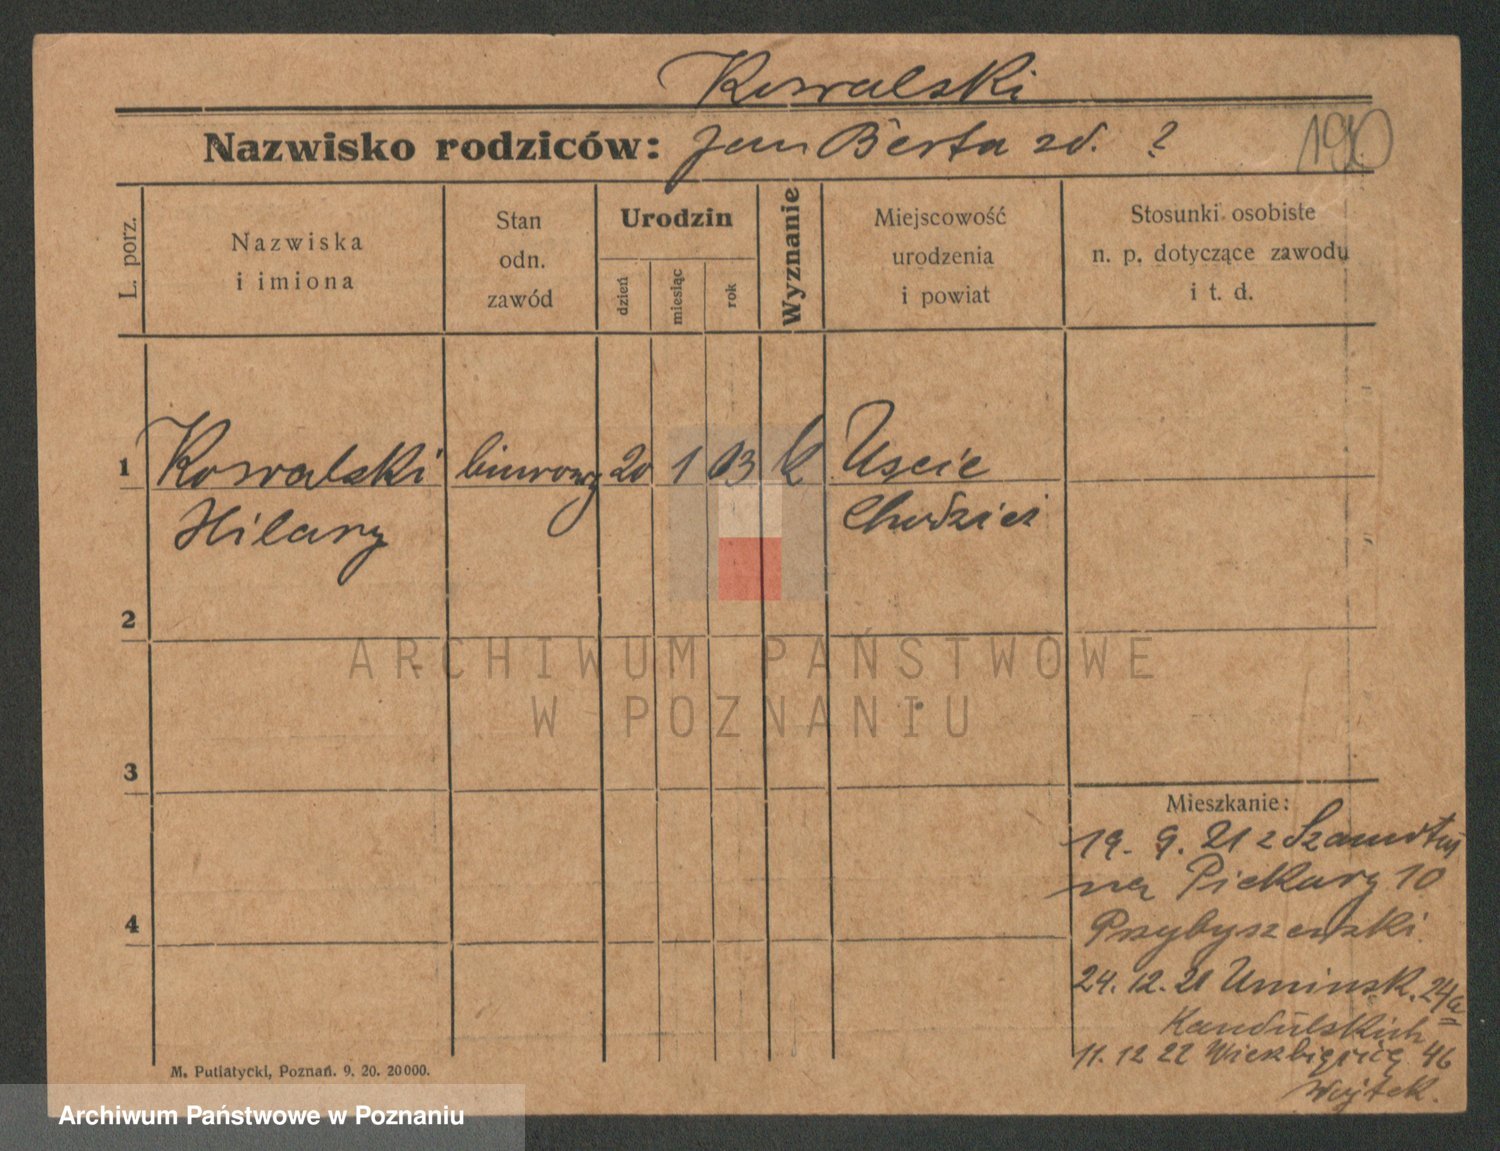 Kowalski
Nazwisko rodziców: Jan Berta zd. ?
190
L. porz.
Nazwiska
i imiona
Stan
odn.
zawód
Urodzin
dzień
miesiąc
rok
Wyznanie
Miejscowość
urodzenia
i powiat
Stosunki osobiste
n. p. dotyczące zawodu
i t. d.
1 Kowalski biurowy 20 1 03 k Uscie
Hilary Chodzież
2
ARCHIWUM PAŃSTWOWE
W POZNANIU
3
Mieszkanie:
19. 9. 21 z Szamotuł
na Piekary 10
4
Przybyszewski.
24. 12. 21 Uminsk. 24/a
Kandulskich
11. 12 22 Wierzbięcice 46
Wojtek.
M. Putiatycki, Poznań. 9. 20. 20000.
Archiwum Państwowe w Poznaniu